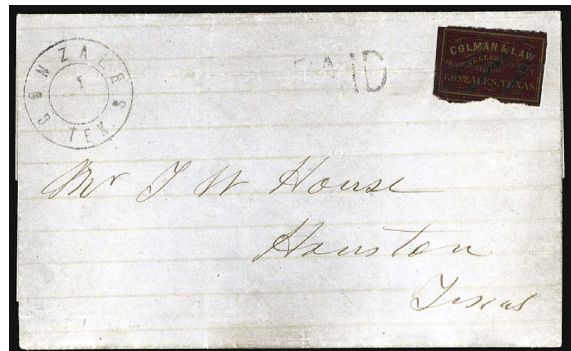 GONZALES
1
TEX.
PAID
COLMAN & LAW
BOOKSELLERS
GONZALES, TEXAS
Mr T W House
Houston
Texas